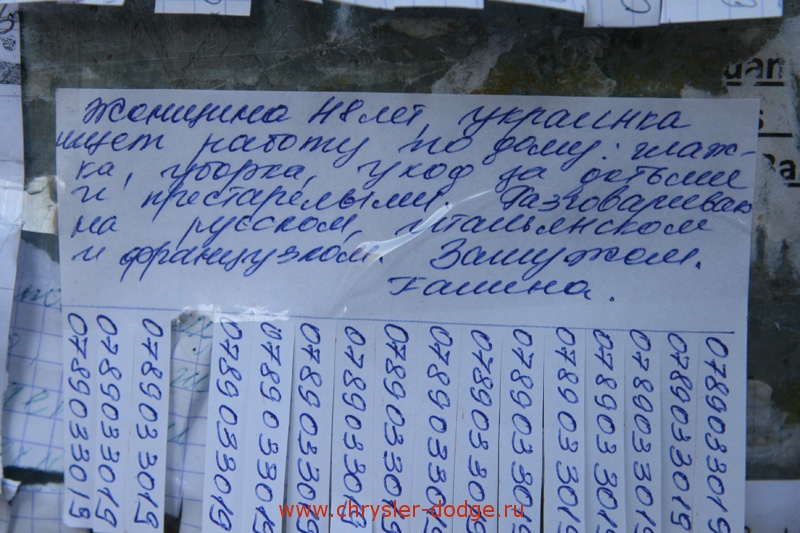 Женщина 48 лет, украинка
ищет работу по дому: глаж-
ка, уборка, уход за детьми
и престарелыми. Разговариваю
на русском, итальянском
и французком. Замужем.
Галина.
0789033019
0789033019
0789033019
0789033019
0789033019
0789033019
0789033019
0789033019
0789033019
0789033019
0789033019
0789033019
0789033019
0789033019
0789033019
0789033019
www.chrysler-dodge.ru